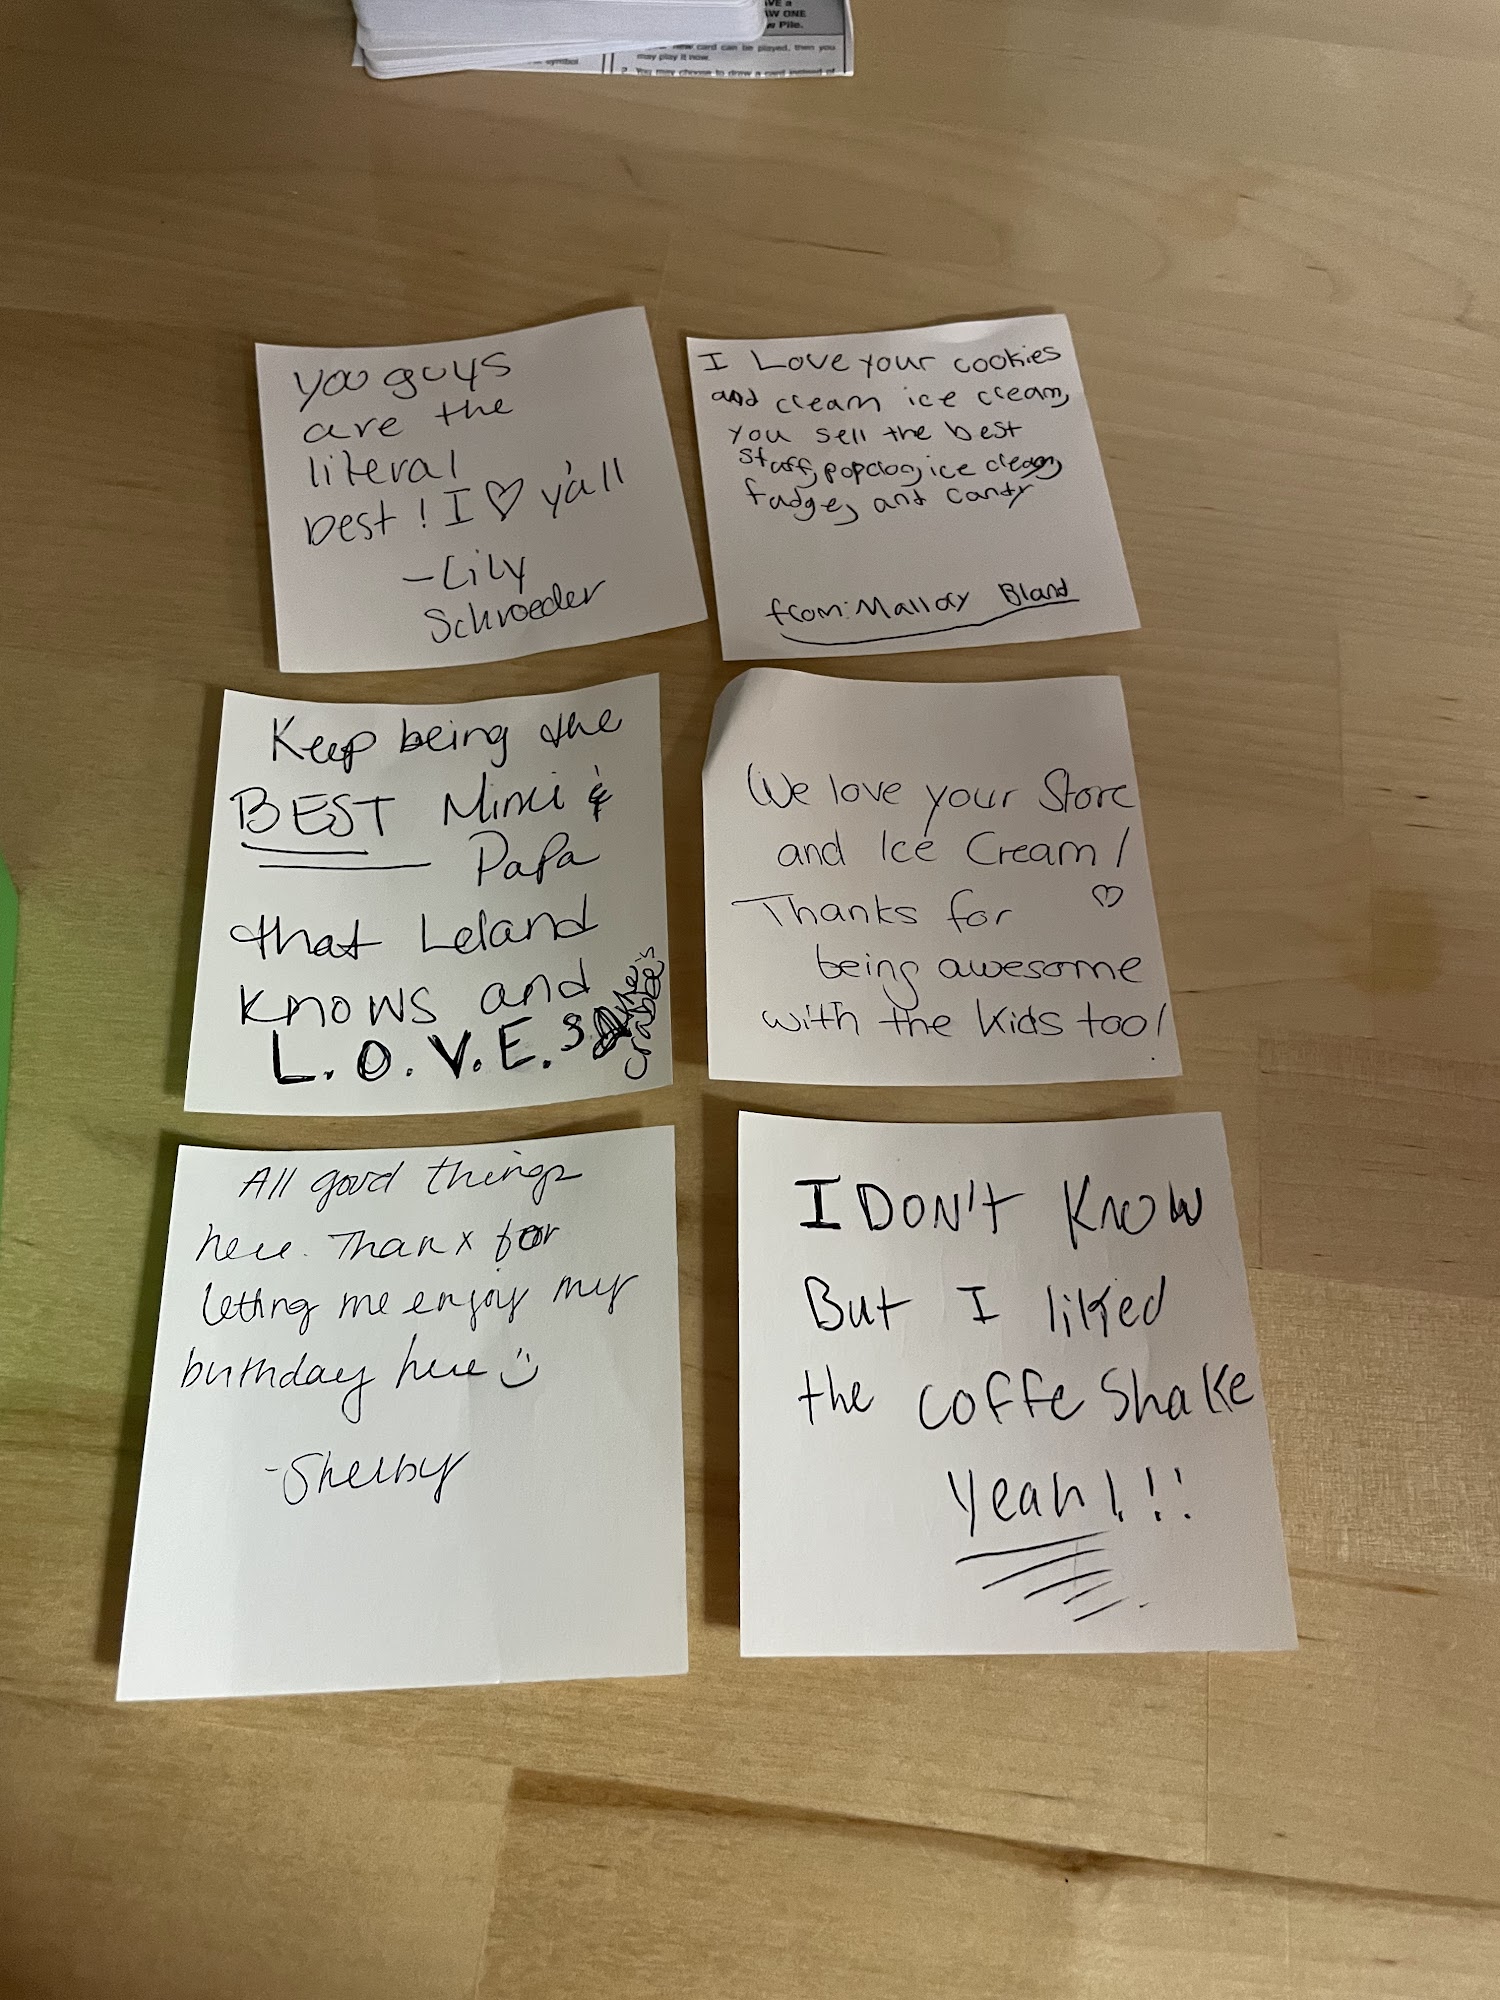 AVE a
AW ONE
Pile.
new card can be played, then you
may play it now.
symbol
2. You may choose to draw a card instead of
you guys
are the
literal
best! I ♡ y'all
-Lily
Schroeder
I Love your cookies
and cream ice cream,
you sell the best
stuff, popclon, ice cream,
fudge, and candy
from: Mallory Bland
Keep being the
BEST Mimi &
Papa
that Leland
knows and
L.O.V.E.S
We love your Store
and Ice Cream!
Thanks for ♡
being awesome
with the kids too!
All good things
here. Thanx for
letting me enjoy my
birthday here :)
-Shelby
I DON't Know
But I liked
the coffe Shake
Yeah!!!